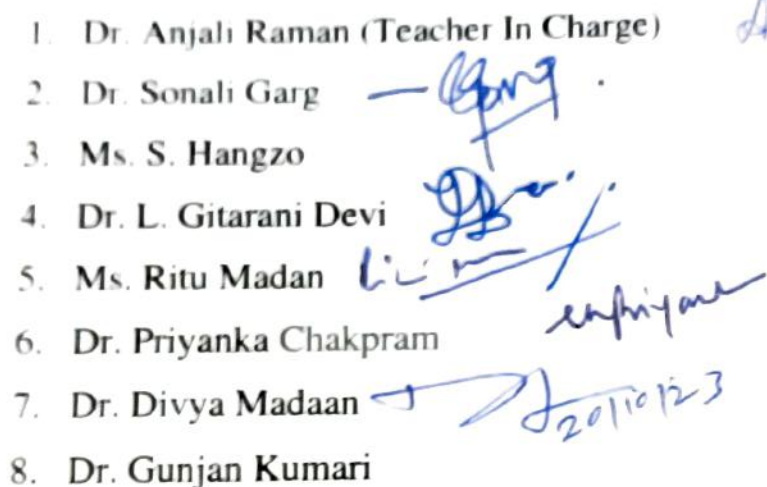 1. Dr. Anjali Raman (Teacher In Charge)
2. Dr. Sonali Garg — Garg
3. Ms. S. Hangzo
4. Dr. L. Gitarani Devi
5. Ms. Ritu Madan
6. Dr. Priyanka Chakpram
7. Dr. Divya Madaan 20/10/23
8. Dr. Gunjan Kumari